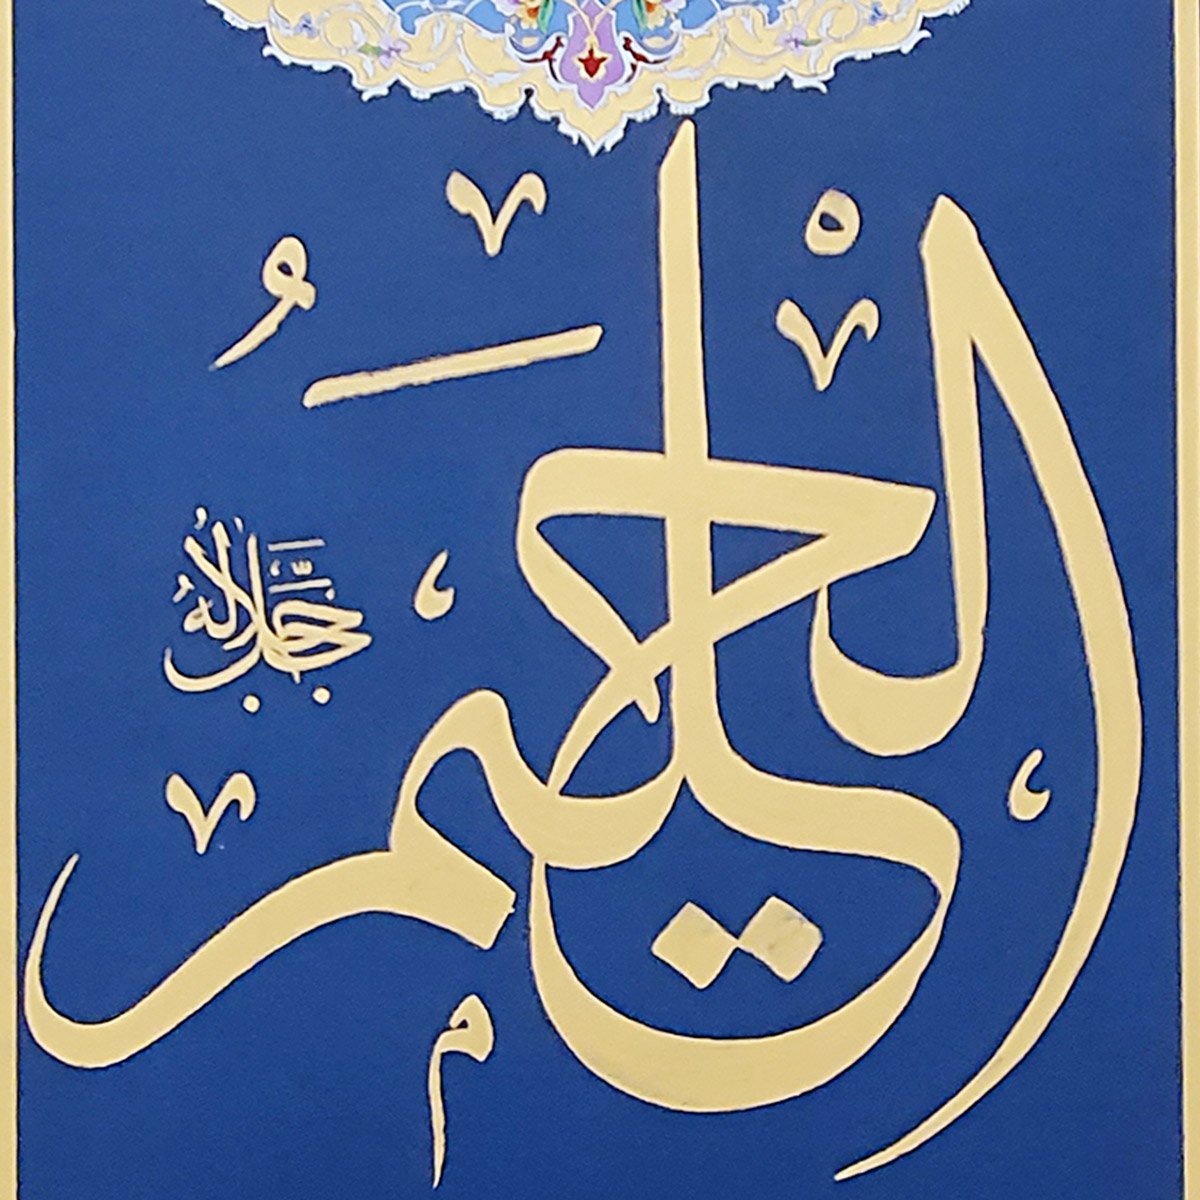 الحليم
جل جلاله